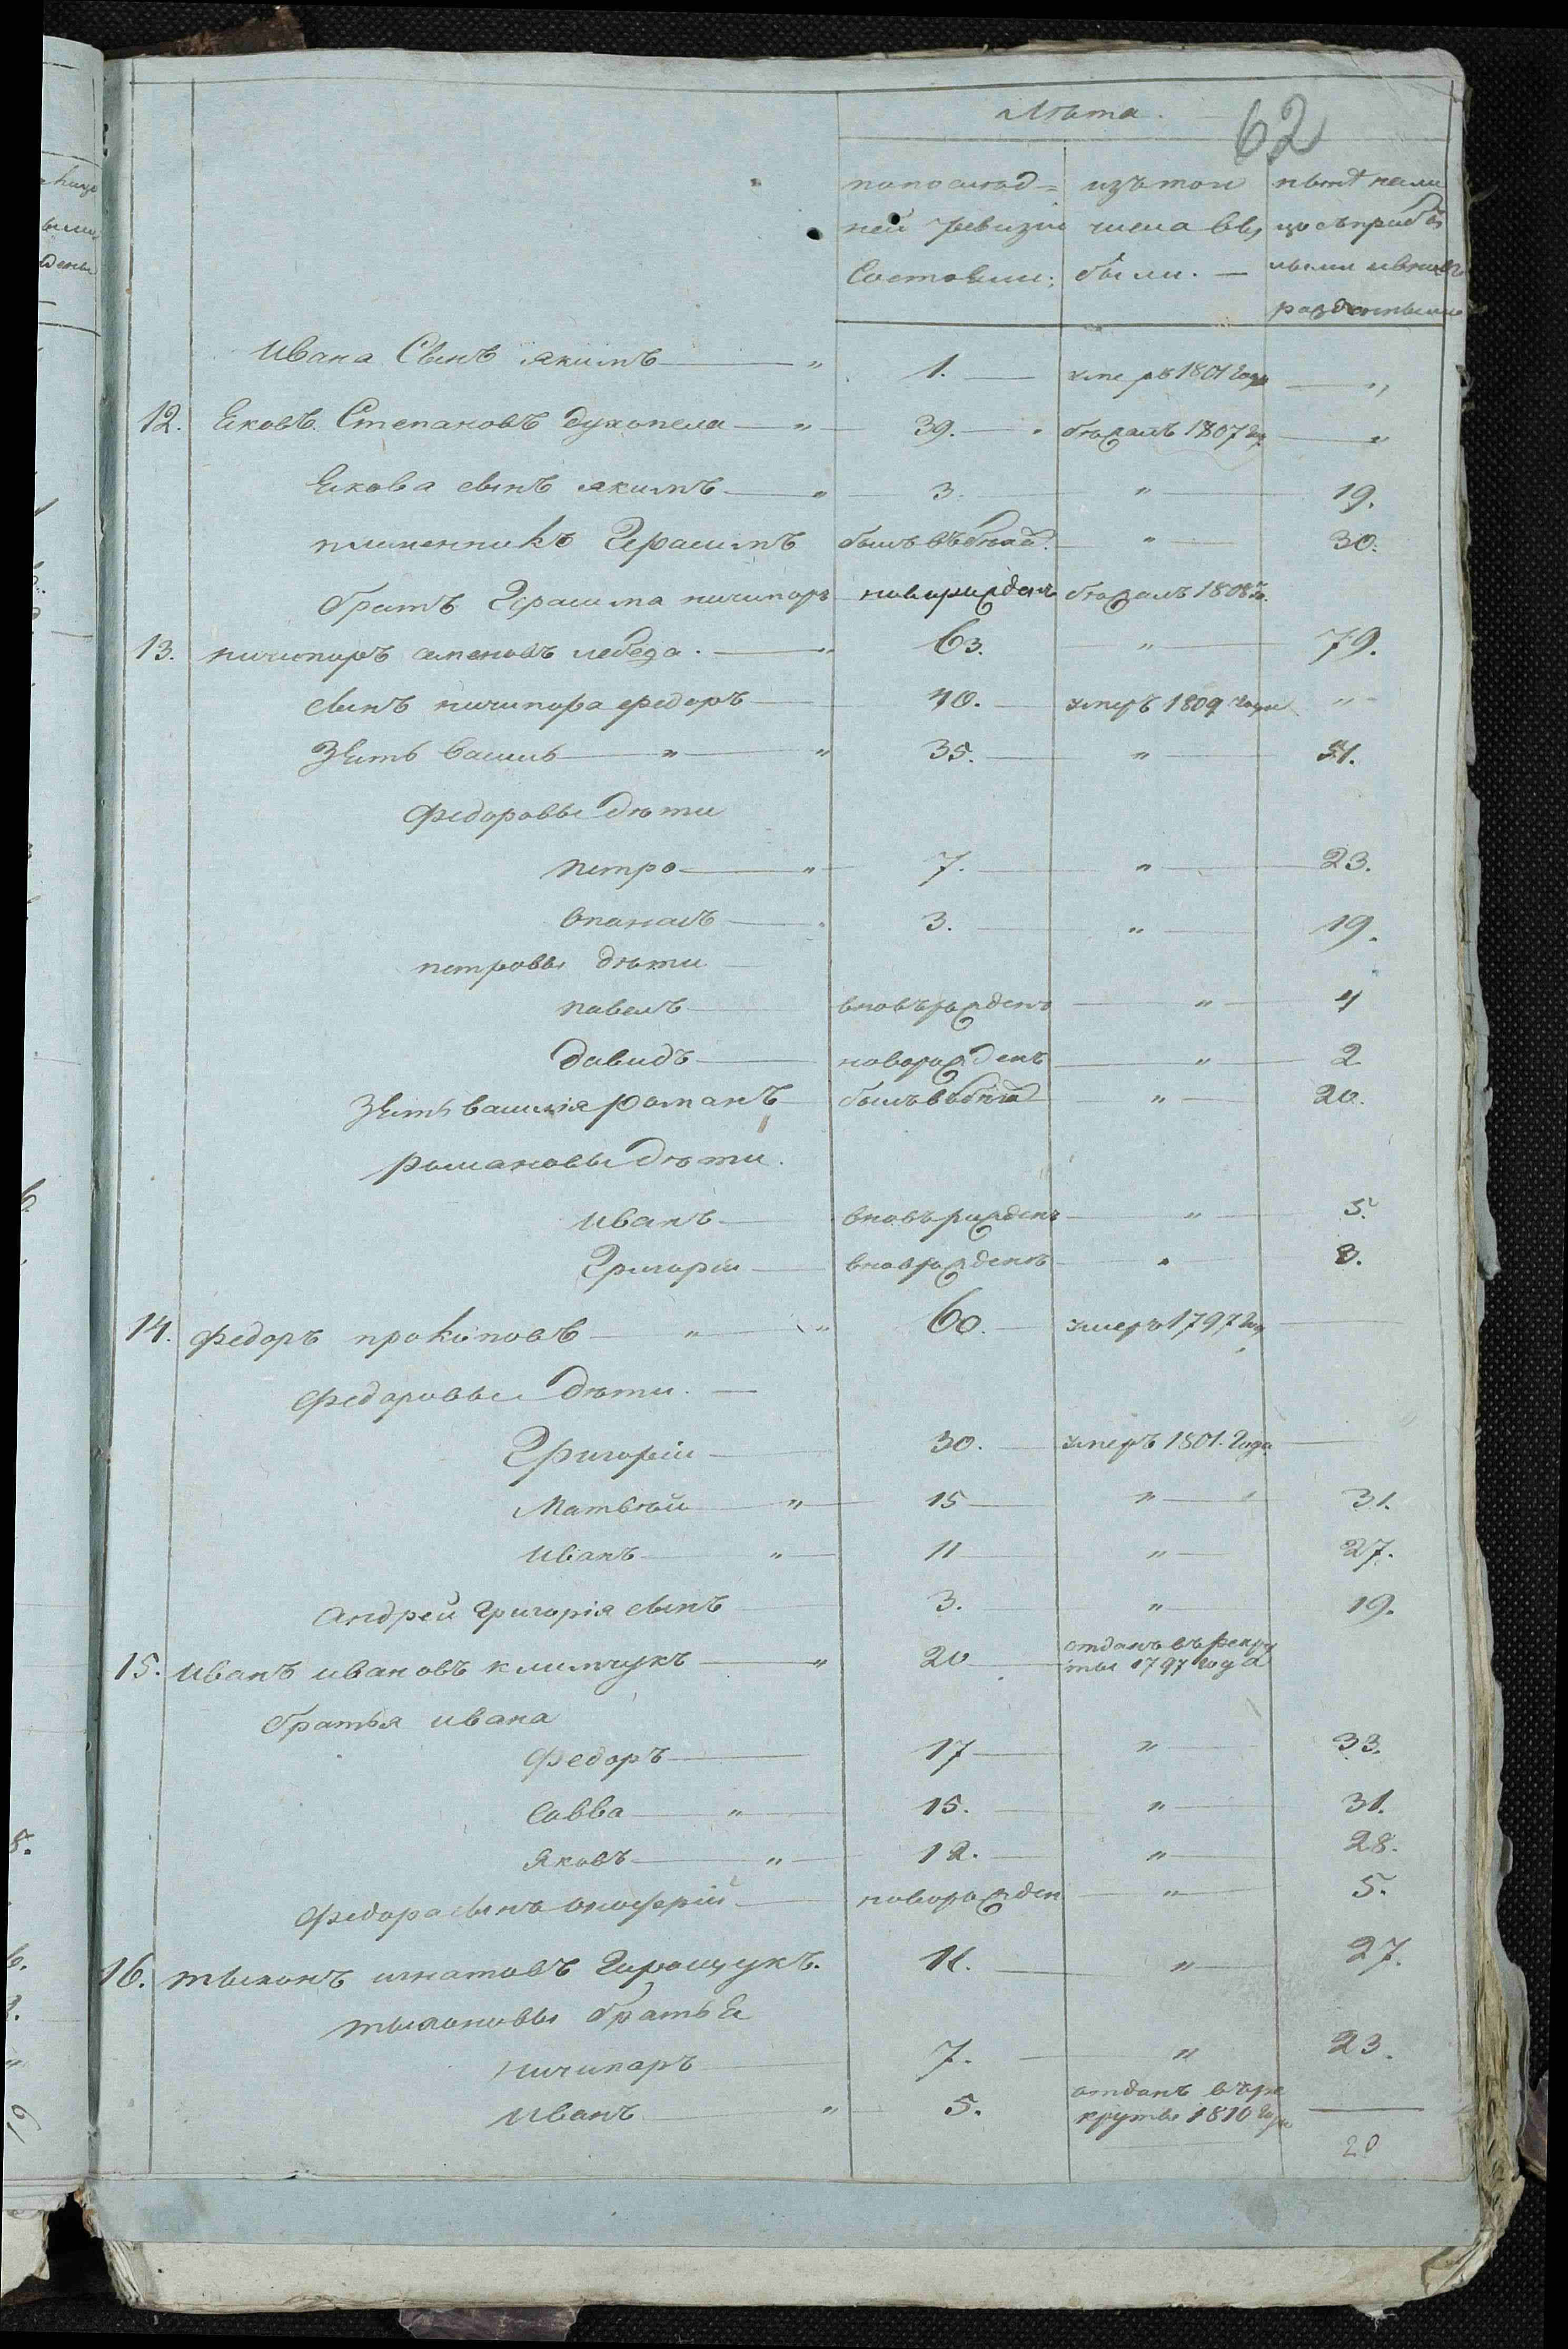 62
Лѣта.
попослѣд= изътой нынѣ нали
ней ревизіи числа вы, цо съприбы
Состояли; были. — лыми ивновь
рожденными
Ивана Сынъ якимъ — „ 1. — умеръ 1801 года — „
12. Яковъ Степановъ духопела — „ — 39. — бѣжалъ 1807 го — „
Якова сынъ якимъ — „ — 3. — „ — 19.
племенникъ Герасимъ былъ въ бѣгах. — „ — 30.
братъ Герасима ничипоръ новорожденъ бѣжалъ 1808 го.
13. ничипоръ семеновъ лебеда. — „ 63. — „ — 79.
сынъ ничипора федоръ — 40. — умеръ 1809 года „
Зять василь — „ — „ 35. — „ — 51.
Федоровы дѣти
петро — „ — 7. — „ — 23.
опанасъ — 3. — „ — 19.
петровы дѣти —
павелъ — вновьрожденъ — „ — 4
давидъ — новорожденъ — „ — 2
Зять василія романъ былъ въ бѣгах — „ — 20.
романовы дѣти.
иванъ — вновьрожденъ — „ — 5.
Григорій — вноврожденъ — „ — 3.
14. федоръ прокоповъ — „ — „ 60. — умеръ 1797 го —
федоровы дѣти. —
Григорій — 30. — умеръ 1801. года —
Матвѣй — „ — 15 — „ — 31.
иванъ — „ — 11 — „ — 27.
андрей григорія сынъ — 3. — „ — 19.
15. иванъ ивановъ климчукъ — „ 20 — отданъ въ рекру
ты 1797 года
братья ивана
федоръ — 17 — „ — 33.
савва — „ — 15. — „ — 31.
яковъ — „ — 12. — „ — 28.
федора сынъ оноферій — новорожден — „ — 5.
16. тыхонъ игнатовъ Геращукъ. 11. — „ — 27.
тыхоновы братья
ничипоръ — 7. — „ 23.
иванъ — „ — 5. отданъ въре
круты 1810 года —
20